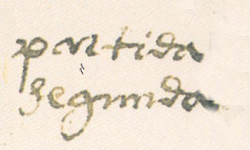 partida
segunda